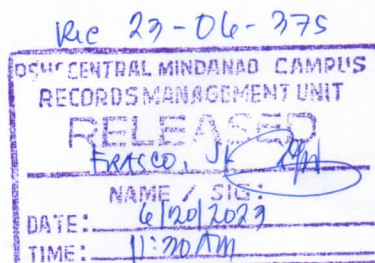 Rec 23-06-375
CENTRAL MINDANAO CAMPUS
RECORDS MANAGEMENT UNIT
RELEASED
FRASCO, J.
NAME / SIG:
DATE: 6/20/2023
TIME: 11:20 AM